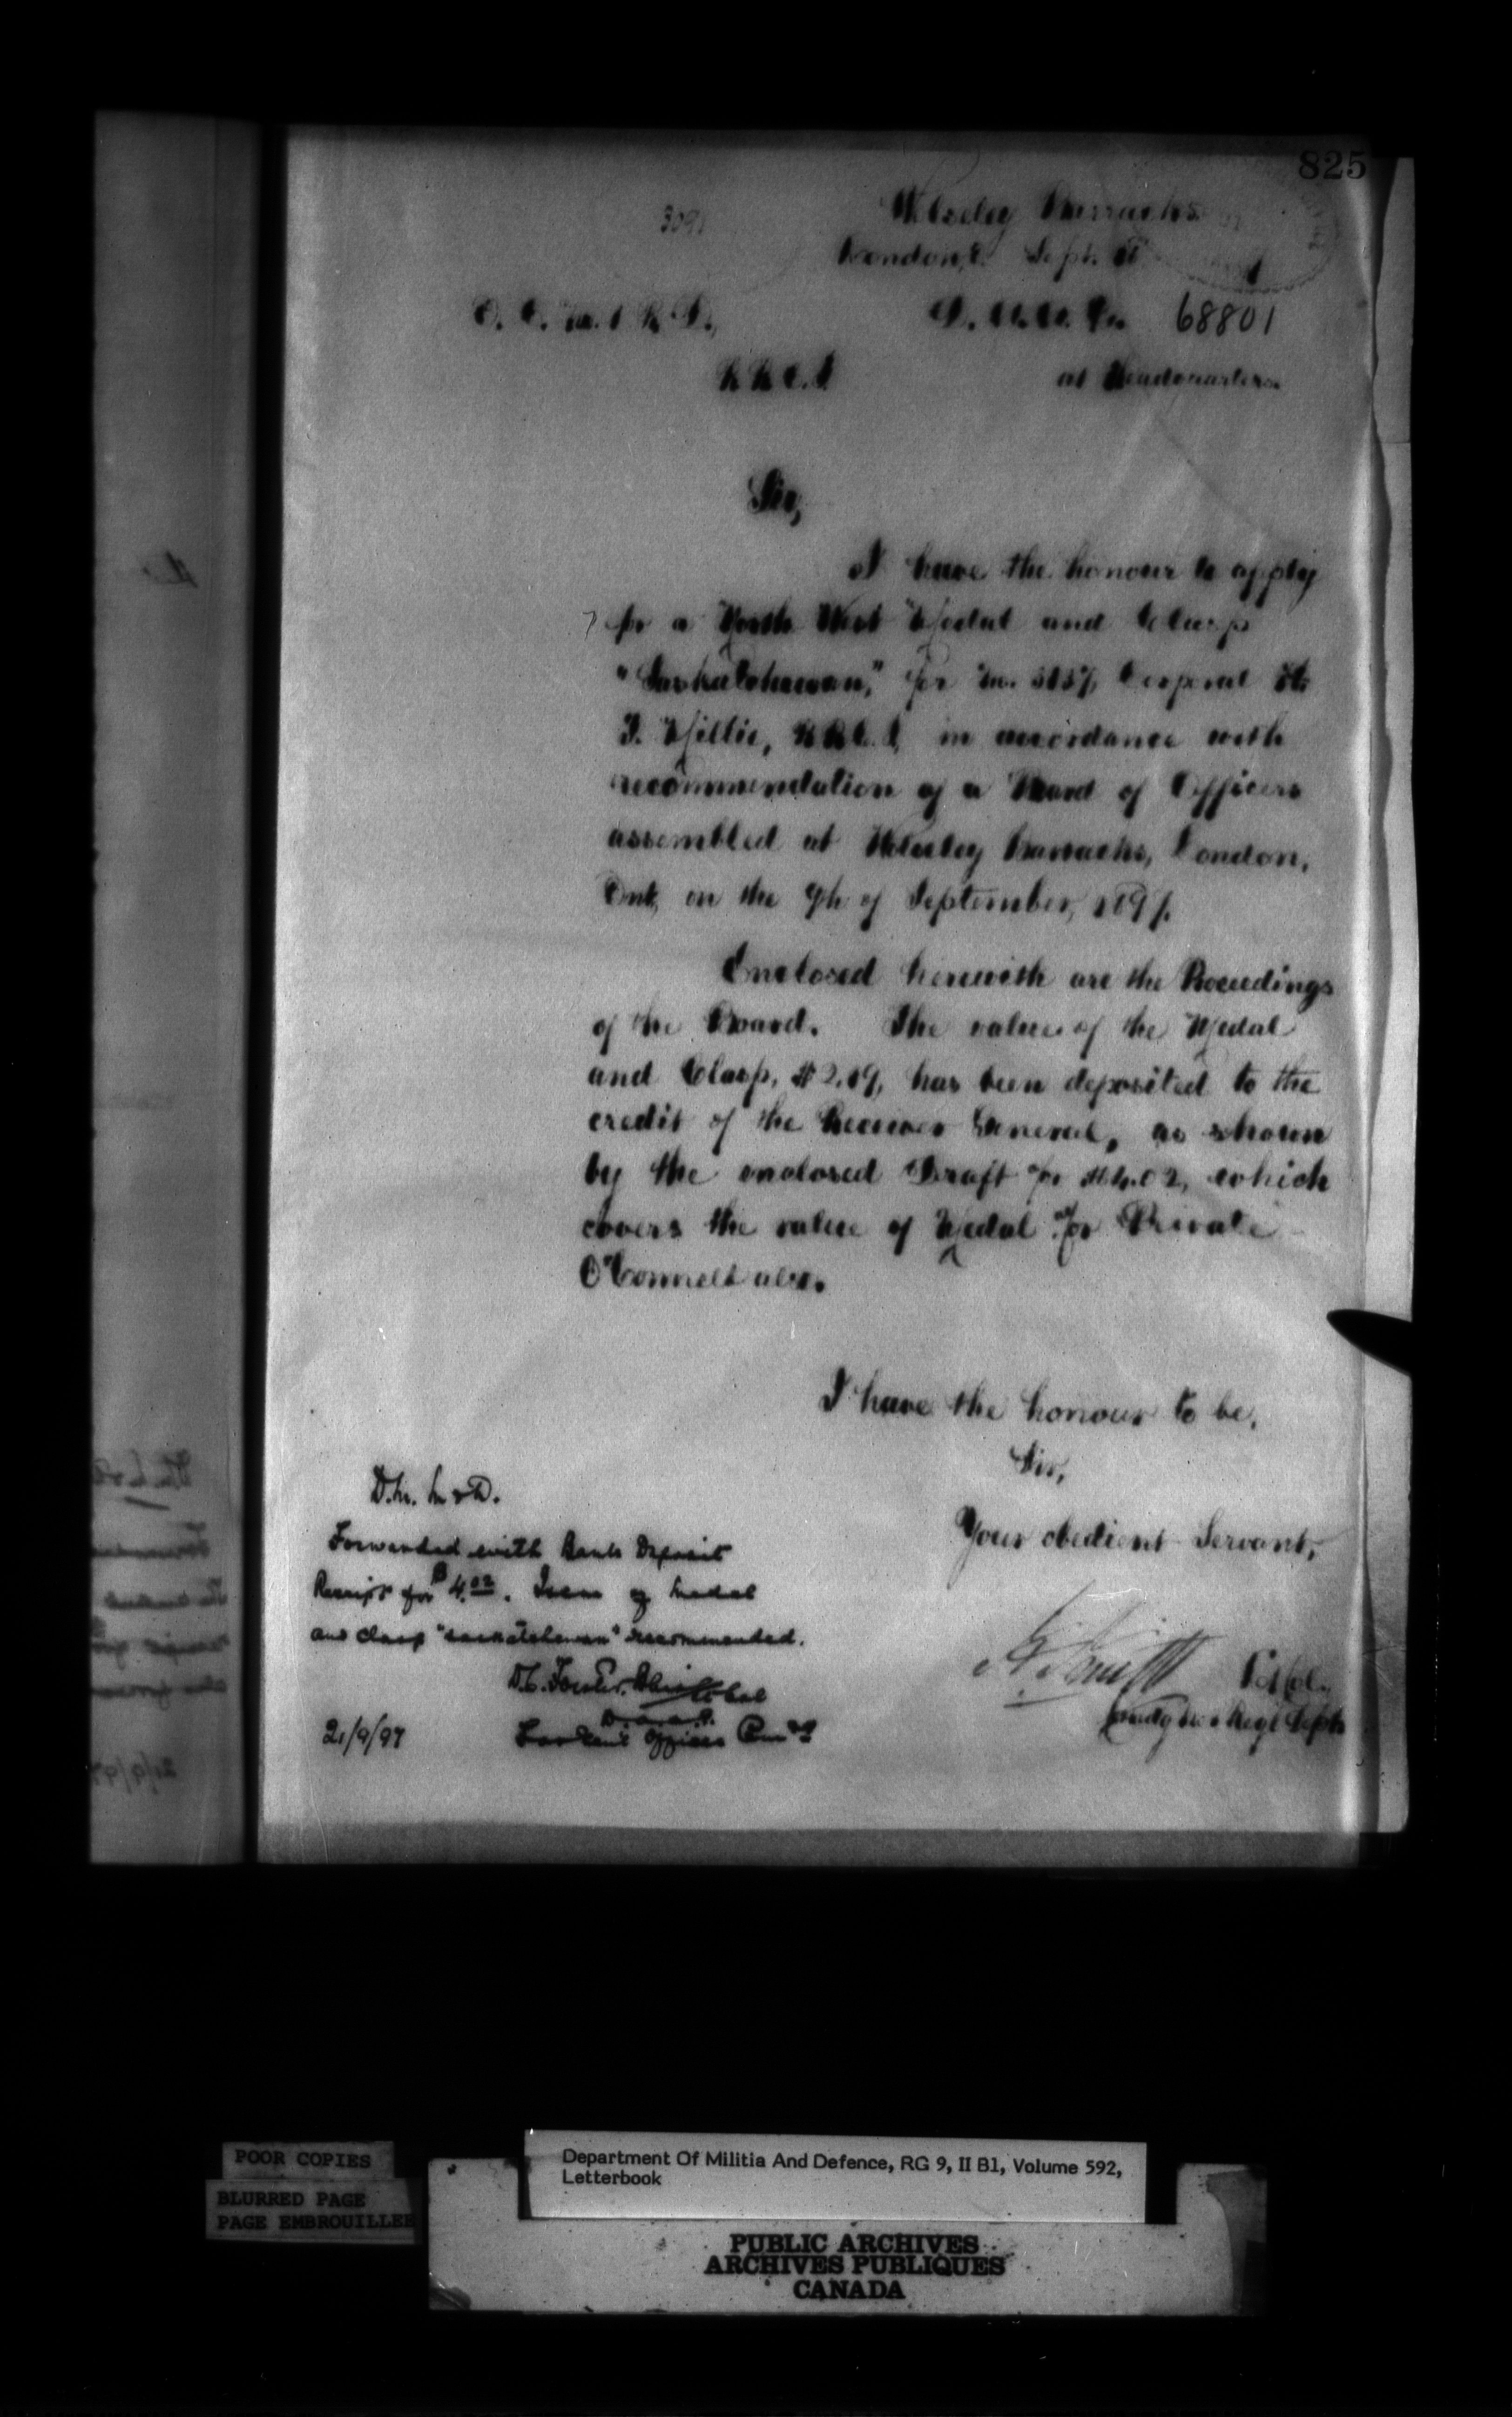 825
3091
Wolseley Barracks
London, Sept.
68801
R.R.C.I.
at Headquarters
Sir,
I have the honour to apply
for a North West Medal and Clasp
"Saskatchewan," for Corporal
Millie, R.R.C.I. in accordance with
recommendation of a Board of Officers
assembled at Wolseley Barracks, London,
Ont, on the 9th of September, 1897.
Enclosed herewith are the Proceedings
of the Board. The value of the Medal
and Clasp, has been deposited to the
credit of the Receiver General, as shown
by the enclosed Draft for $4.02, which
covers the value of Medal for Private
O'Connell also.
I have the honour to be,
Sir,
Your obedient Servant,
Lt Col.
Comdg No 1 Regl Depôt
Forwarded with Bank Deposit
Receipt for $4.02. Issue of medal
and clasp "Saskatchewan" recommended.
21/9/97
POOR COPIES
BLURRED PAGE
PAGE EMBROUILLEE
Department Of Militia And Defence, RG 9, II B1, Volume 592,
Letterbook
PUBLIC ARCHIVES
ARCHIVES PUBLIQUES
CANADA